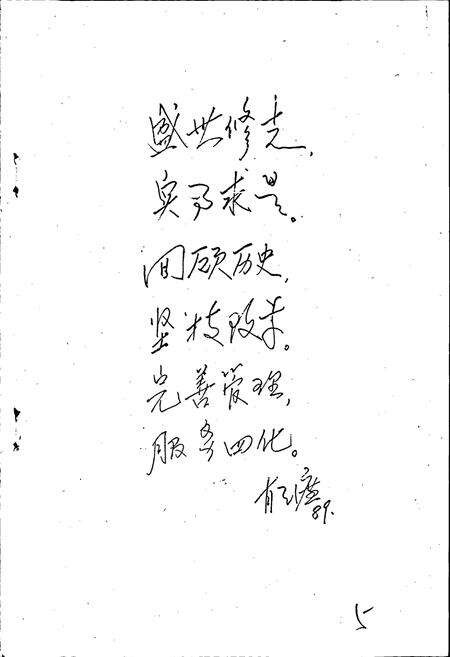 盛世修志,
实事求是。
回顾历史,
坚持改革。
完善管理,
服务四化。
89.
5